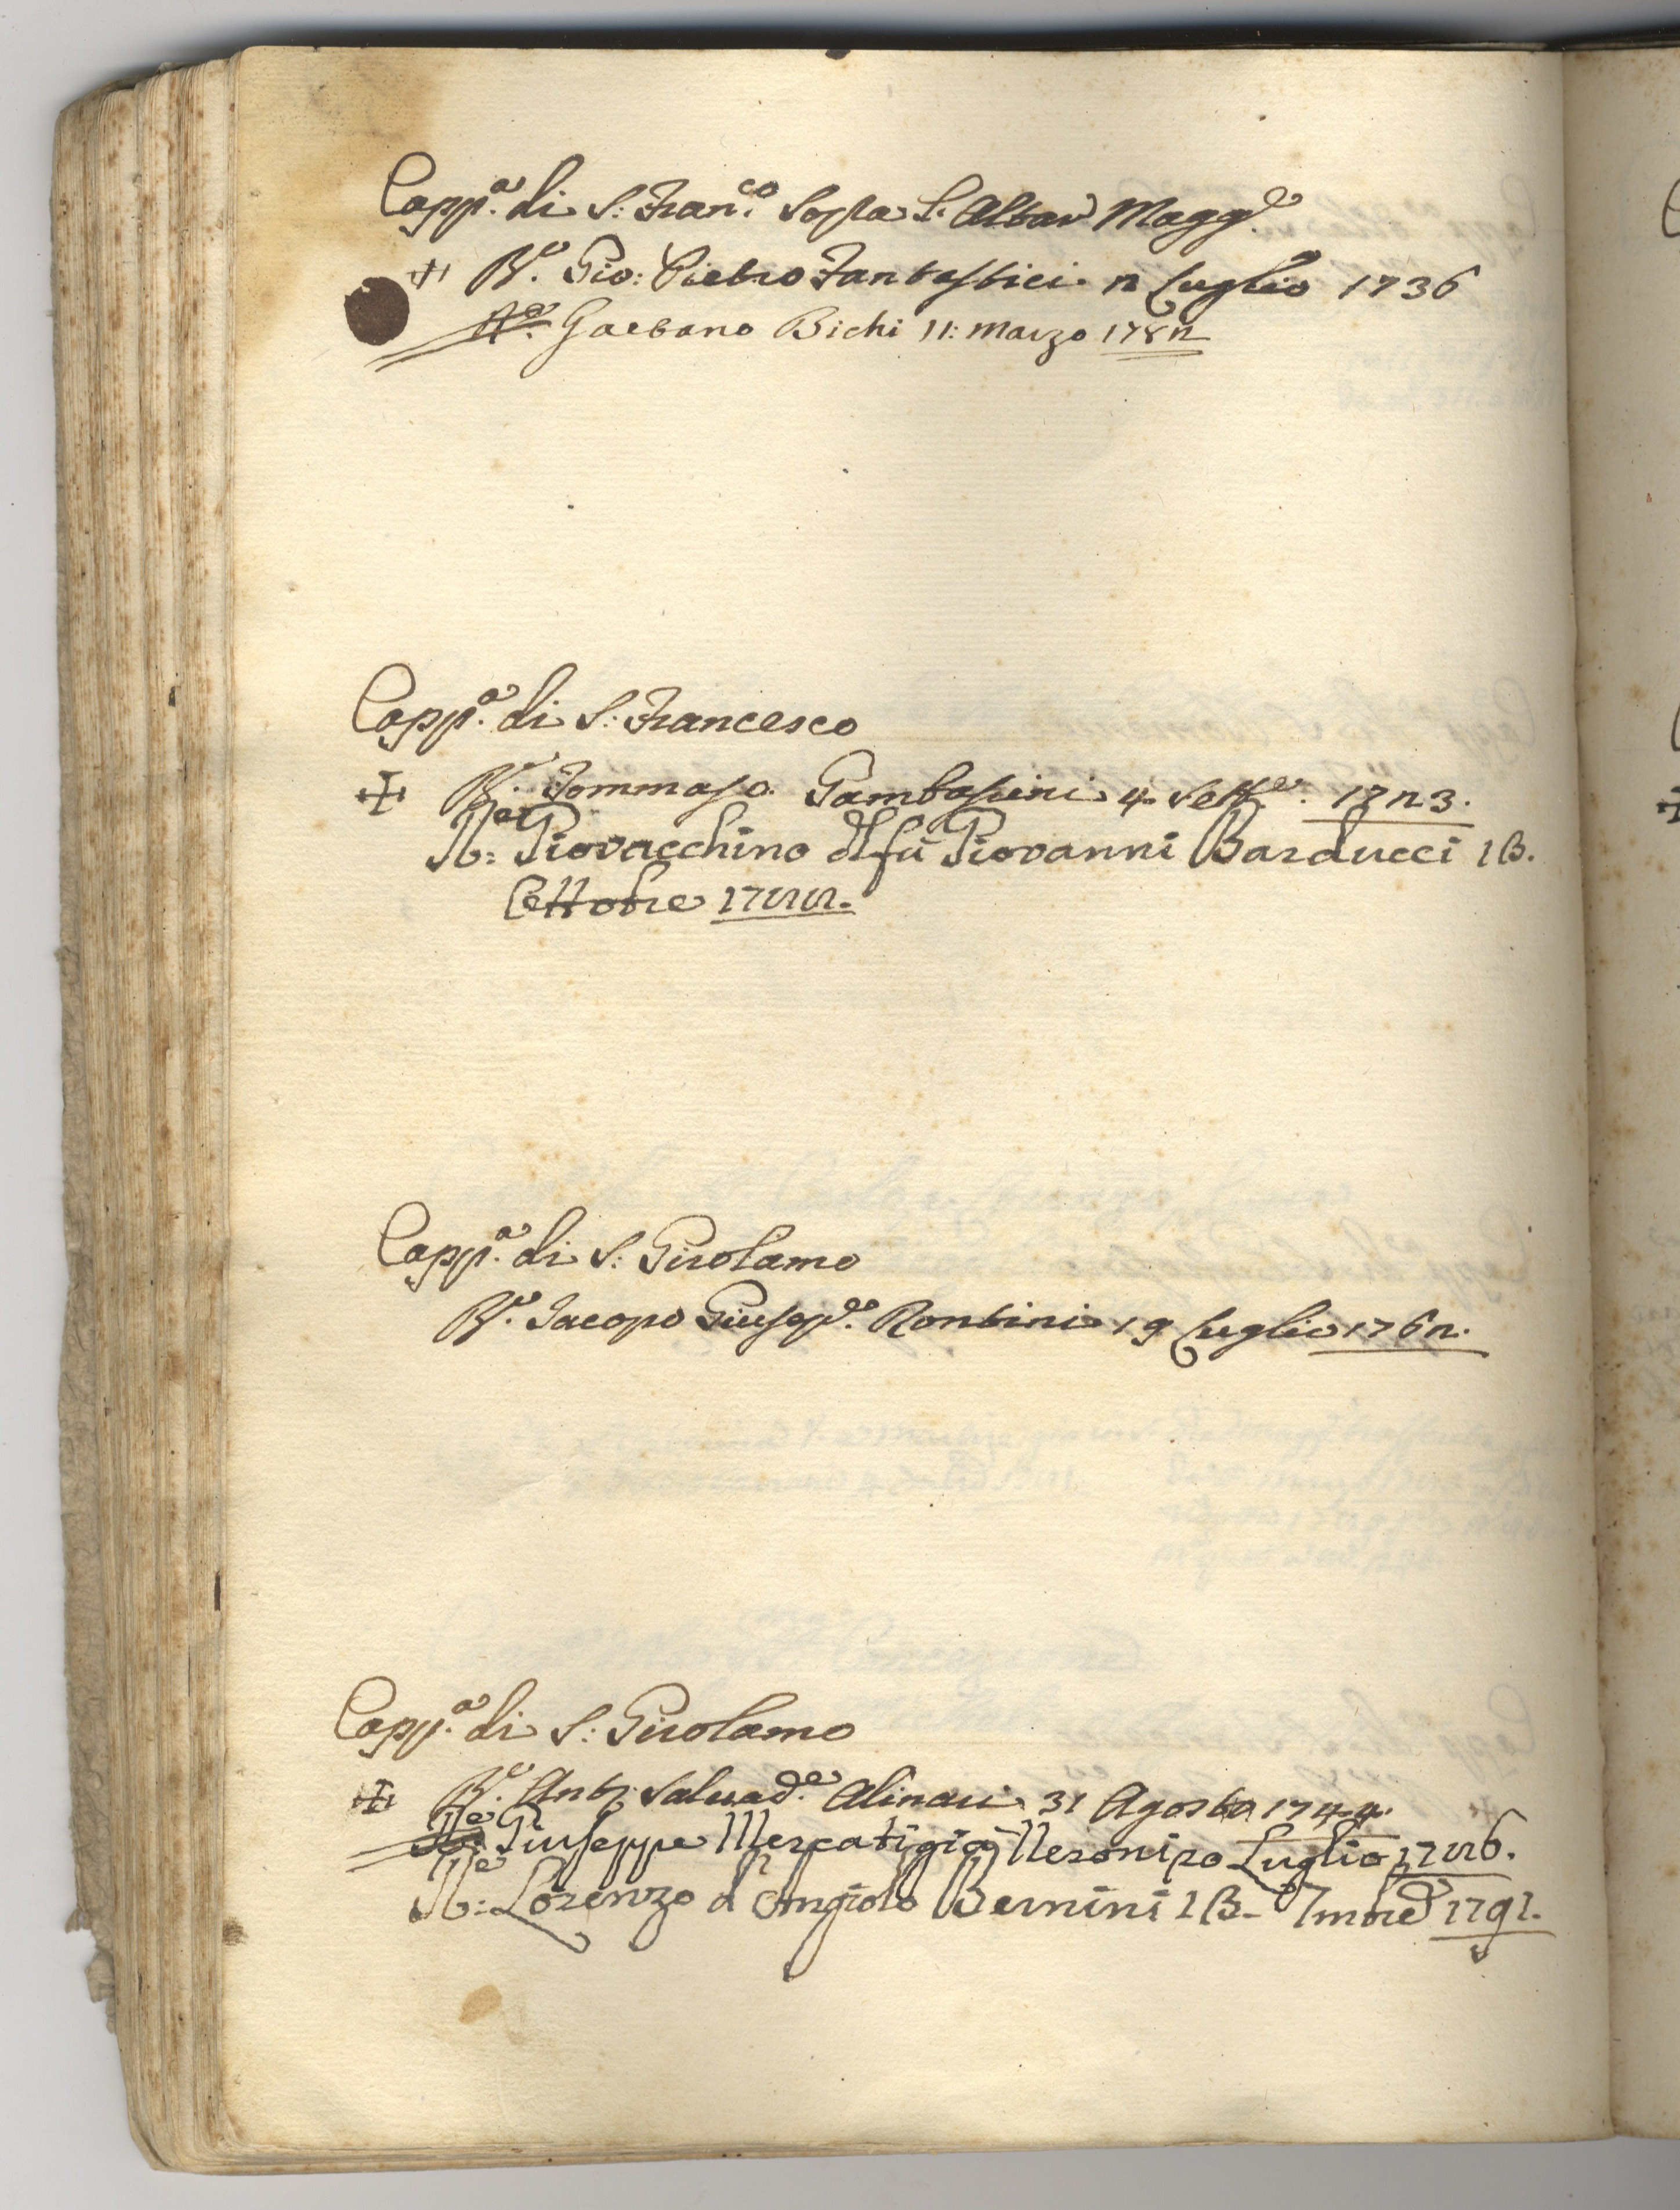 Capp.ª di S: Fran.co Sopra l'Altar Magg.e
+ R.e Gio: Pietro Fantastici 2 Luglio 1736
R.e Gaetano Bichi 11: Marzo 1782
Capp.ª di S: Francesco
+ R.e Tommaso 4 Sett.e 1723.
R:e Giovacchino d fù Giovanni Barducci 13.
Ottobre 1777.
Capp.ª di S: Girolamo
R.e Iacopo Giusep.e Rontini 19 Luglio 1762.
Capp.ª di S: Girolamo
+ R.e Ant: Salvad.e Alinari 31 Agosto 1744.
R:e Giuseppe Neroni 20 Luglio 1776.
R:e Lorenzo d'Angiolo Bernini 13- 7mbre 1791.